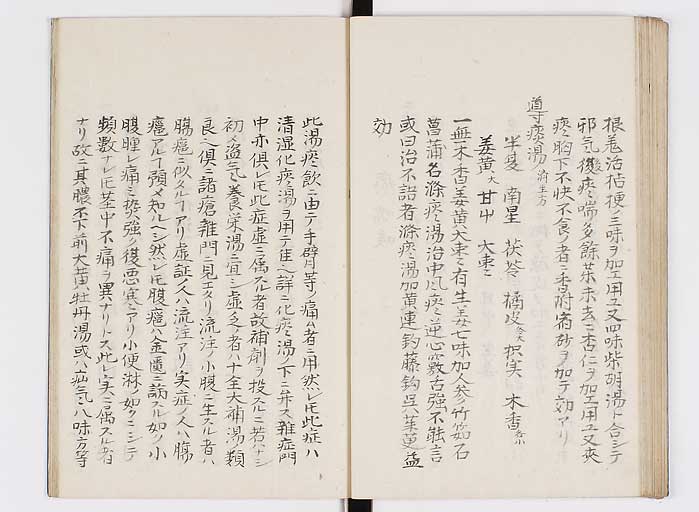 根莬治桔梗ノ三味ヲ加エ用ユ又四味柴胡湯ト合シテ
邪気後痰喘多餘茱未去ニ杏仁ヲ加エ用ユ又夾
痰胸下不快不食ノ者ニ香附宿砂ヲ加テ効アリ
導痰湯 済生方
半夏 南星 茯苓 橘皮 枳実 木香
姜黄 甘艸 大枣
一無木香姜黄大枣有生姜七味加人参竹筎石
菖蒲名滌痰湯治中風痰逆心竅舌強不能言
或曰治不語者滌痰湯加黄連釣藤鈎呉茱萸益
効
此湯痰飲ニ由テ手臂等ノ痛ハ者ニ用然レ𪜈此症ハ
清湿化痰湯ヲ用テ佳シ詳ニ化痰湯ノ下ニ弁ス雜症門
中亦俱レ𪜈此症虚ニ偶スル者故補劑ヲ投スルニ若ハナシ
初メ盗気ニ養栄湯ニ宜シ虚乏ハ者ハ十全大補湯類
良シ俱ニ諸瘡雜門ニ見エタリ流注ノ小腹ニ生スル者ハ
腸癰ニ似タルアリ虚証ノ人ハ流注アリ実症ノ人ハ腸
癰アルテ預メ知ルヘシ然レ𪜈腹癰ハ金匱ニ病スル如ノ小
腹腫レ痛ミ按強ク復悪寒シアリ小便淋ノ如クニシテ
頻數ナレ𪜈茎中不痛ヲ異ナリトス此レ実ニ偶スル者
ナリ故ニ其膿不下前大黄牡丹湯或ハ疝気八味方等